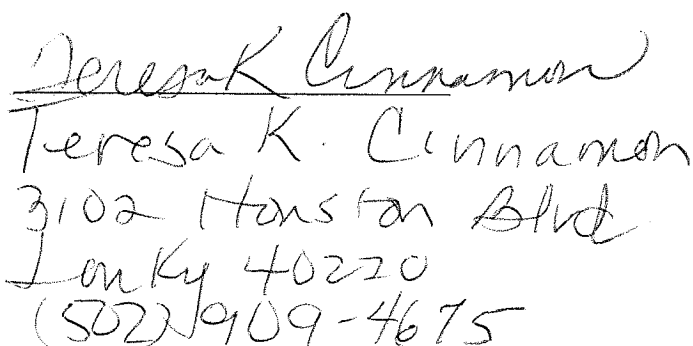 Teresa K Cinnamon
Teresa K. Cinnamon
3102 Houston Blvd
Lou Ky 40220
(502) 909-4675